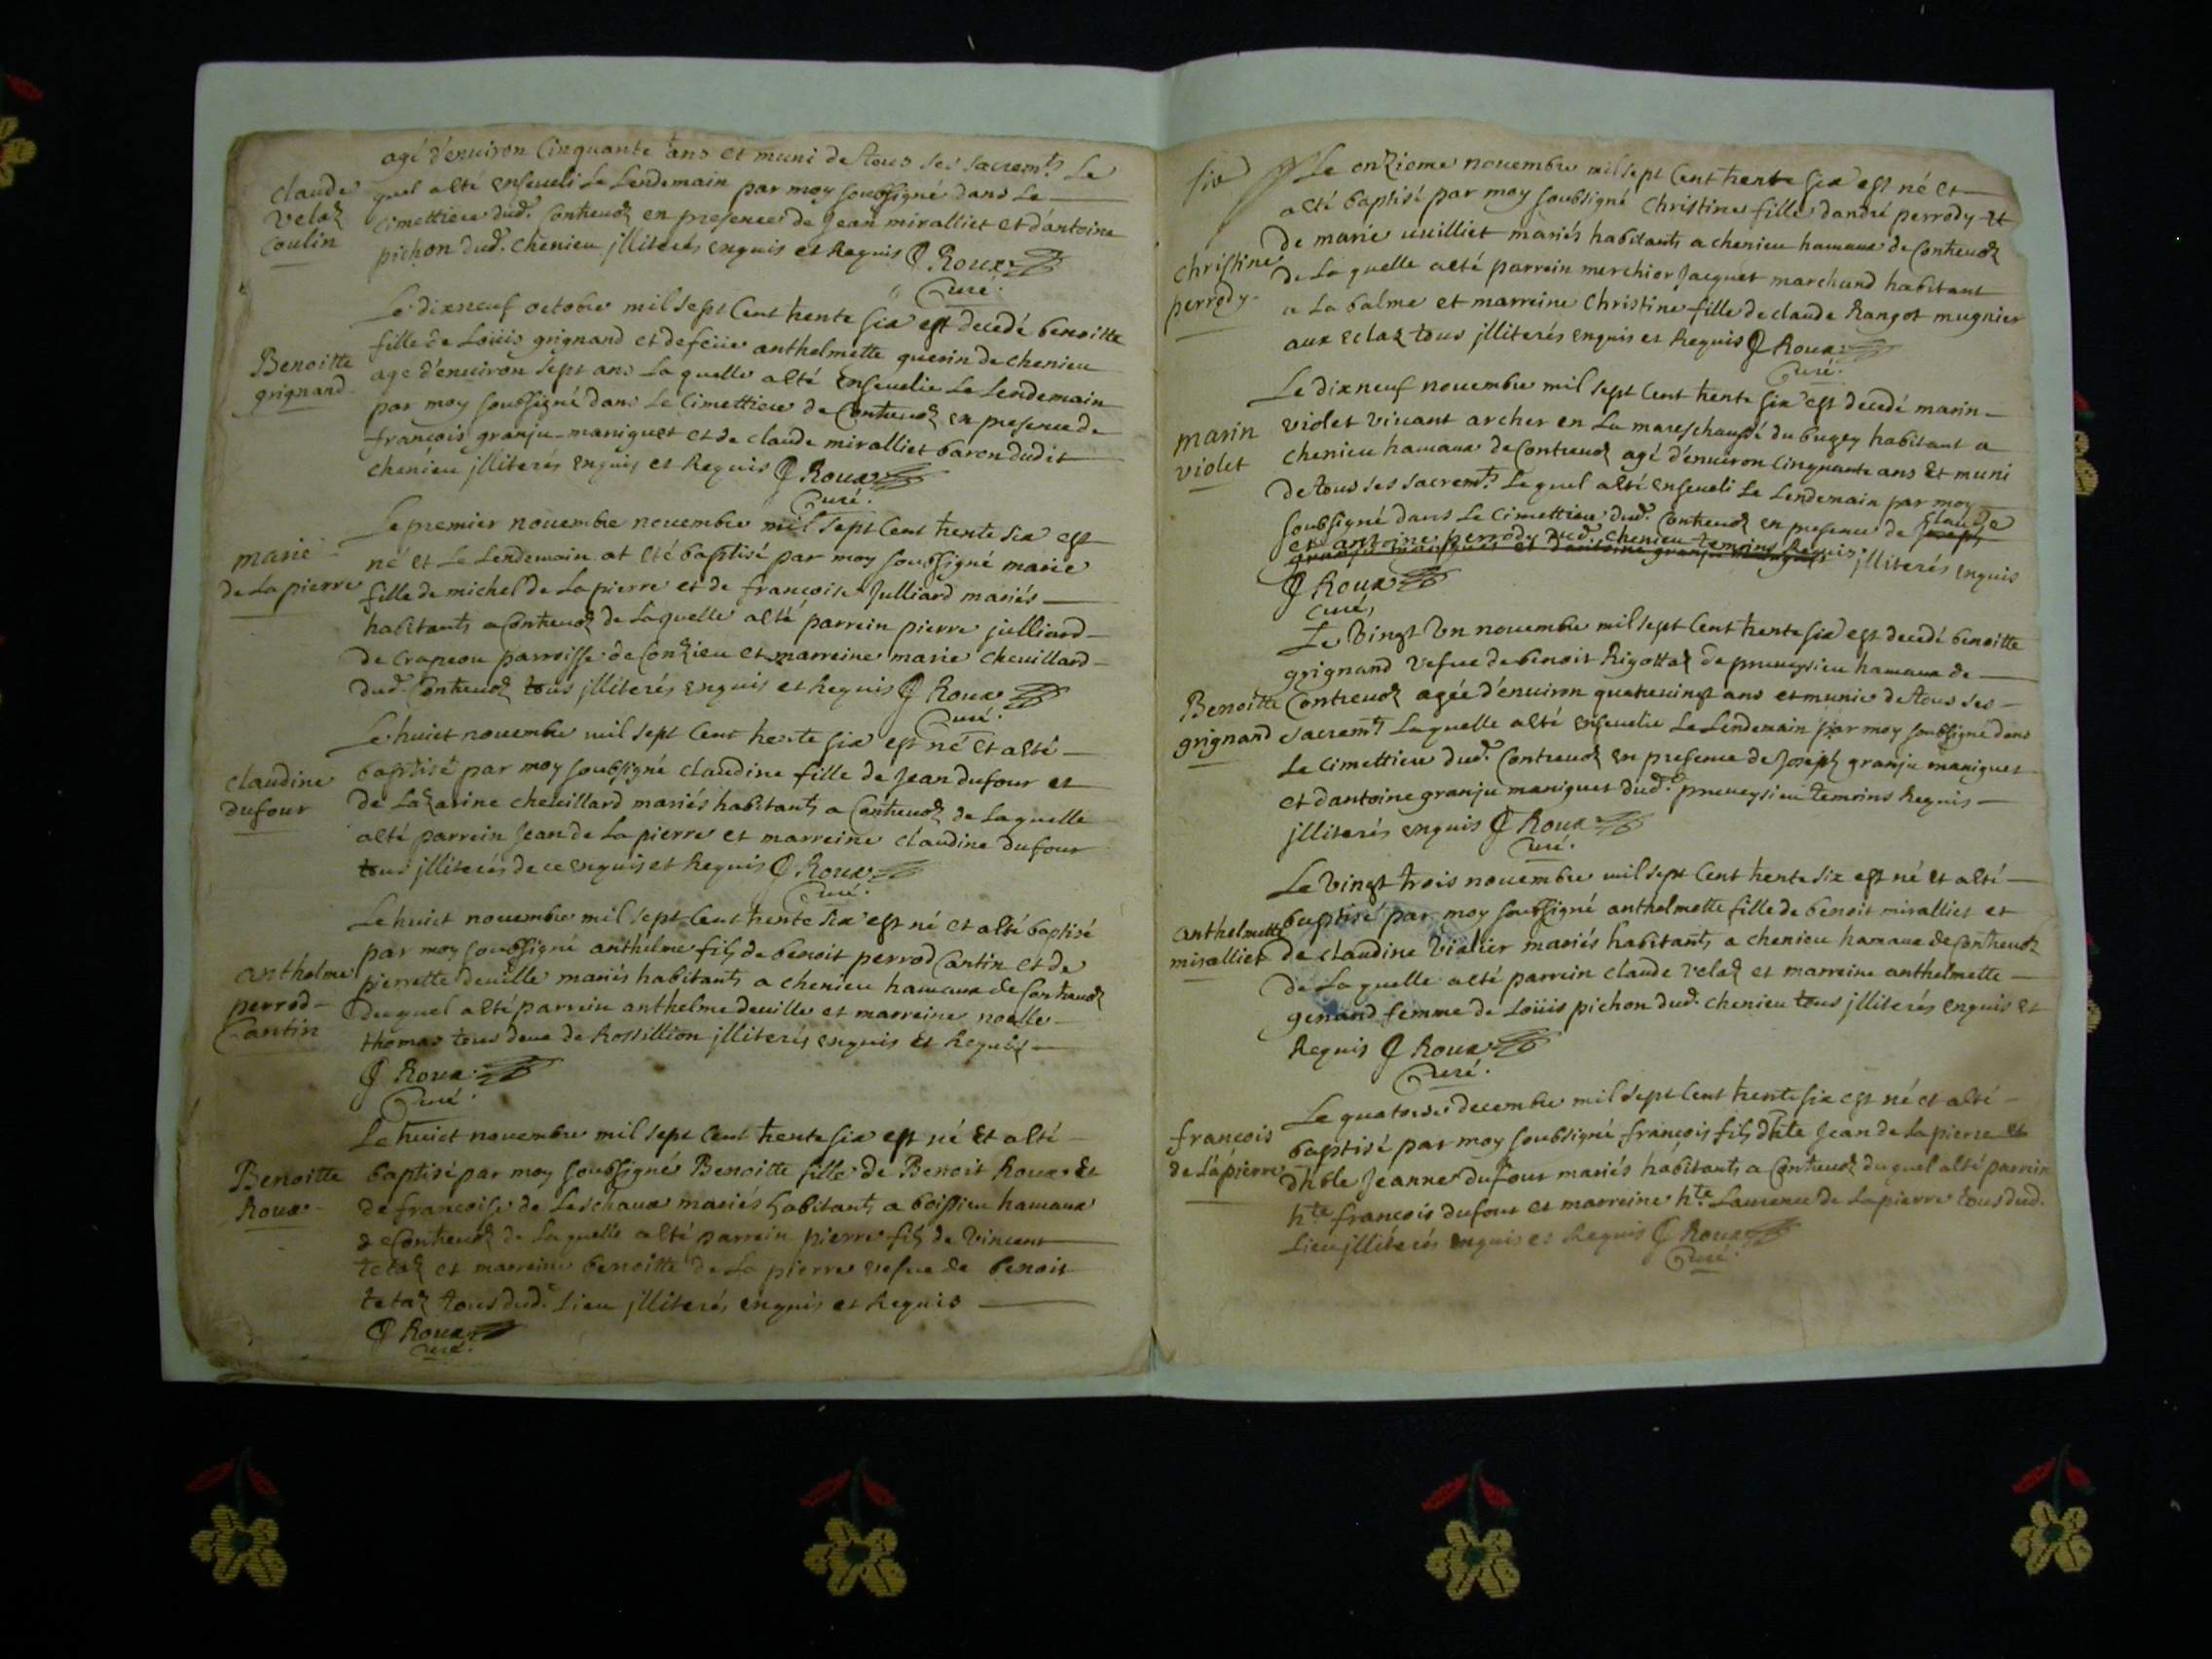 agé d'enuiron Cinquante ans et muni de tous ses sacremts Le
claude velaz coulin
quel a eté enseueli Le Lendemain par moy soubsigné dans Le
cimettiere dud. Contreuoz en presence de Jean miralliet et d'antoine
pichon dud. chenieu jlliterés enquis et Requis Roux
Curé.
Le dixneuf octobre mil sept Cent trente six est decedé benoitte
Benoitte grignand
fille de Loüis grignand et de feüe anthelmette guerin de chenieu
age d'enuiron sept ans La quelle a eté enseuelie Le Lendemain
par moy soubsigné dans Le Cimettiere de Contreuoz en presence de
francois granju-maniguet et de claude miralliet baron dudit
chenieu jlliterés enquis et Requis Roux
Curé.
Le premier nouembre nouembre mil sept Cent trente six est
marie de La pierre
né et Le Lendemain at eté baptisé par moy soubsigné marie
fille de michel de La pierre et de francoise Julliard mariés
habitants a Contreuoz de Laquelle a eté parrein pierre julliard
de Crapeou parroisse de Conzieu et marreine marie cheuillard
dud. Contreuoz tous jlliterés enquis et Requis Roux
Curé.
Le huict nouembre mil sept Cent trente six est né et a eté
claudine dufour
baptisé par moy soubsigné claudine fille de Jean dufour et
de Lazarine cheuillard mariés habitants a Contreuoz de Laquelle
a eté parrein Jean de La pierre et marreine claudine dufour
tous jlliterés de ce enquis et Requis Roux
Curé.
Le huict nouembre mil sept Cent trente six est né et a eté baptisé
anthelme perrod Cantin
par moy soubsigné anthelme fils de benoit perrod Cantin et de
pierrette deuille mariés habitants a chenieu hamaux de Contreuoz
duquel a eté parrein anthelme deuille et marreine noelle
thomas tous deux de Rossillion jlliterés enquis et Requis
Roux
Curé.
Le huict nouembre mil sept Cent trente six est né et a eté
Benoitte Roux
baptisé par moy soubsigné Benoitte fille de Benoit Roux et
de francoise de Leschaux mariés habitants a boissieu hamaux
de Contreuoz de Laquelle a eté parrein pierre fils de Vincent
tetaz et marreine benoitte de La pierre vefue de benoit
tetaz tous dud. Lieu jlliterés enquis et Requis
Roux
Curé.
six
Le onzieme nouembre mil sept Cent trente six est né et
a eté baptisé par moy soubsigné Christine fille dandré perrody et
christine perrody
de marie uuilliet mariés habitants a chenieu hamaux de Contreuoz
de La quelle a eté parrein merchior Jacquet marchand habitant
a La balme et marreine Christine fille de claude Rangot mugnier
aux eclaz tous jlliterés enquis et Requis Roux
Curé.
Le dixneuf nouembre mil sept Cent trente six est decedé marin
marin violet
violet viuant archer en La mareschaussé du bugey habitant a
chenieu hamaux de Contreuoz agé d'enuiron Cinquante ans et muni
de tous ses sacremts Lequel a eté enseueli Le Lendemain par moy
soubsigné dans Le Cimettiere dud. Contreuoz en presence de Joseph claude
et antoine perrody dud. chenieu temoins Requis
granju maniguet et d'antoine granju maniguet jlliterés enquis
Roux
Curé,
Le Vingt Vn nouembre mil sept Cent trente six est decedé benoitte
grignand vefue de benoit Rigottaz de preueysieu hamaux de
Benoitte grignand
Contreuoz agée d'enuiron quatreuingt ans et munie de tous ses
sacremts Laquelle a eté enseuelie Le Lendemain par moy soubsigné dans
Le Cimettiere dud. Contreuoz en presence de Joseph granju maniguet
et d'antoine granju maniguet dud. preueysieu temoins Requis
jlliterés enquis Roux
Curé.
Le Vingt trois nouembre mil sept Cent trente six est né et a eté
anthelmette miralliet
baptisé par moy soubsigné anthelmette fille de benoit miralliet et
de claudine Violier mariés habitants a chenieu hamaux de Contreuoz
de Laquelle a eté parrein claude velaz et marreine anthelmette
genand femme de Loüis pichon dud. chenieu tous jlliterés enquis et
Requis Roux
Curé.
Le quatorse decembre mil sept Cent trente six est né et a eté
francois de La pierre
baptisé par moy soubsigné francois fils dhte Jean de La pierre et
dhble Jeanne dufour mariés habitants a Contreuoz duquel a eté parrein
hte francois dufour et marreine hte Laurence de La pierre tous dud.
Lieu jlliterés enquis et Requis Roux
Curé.